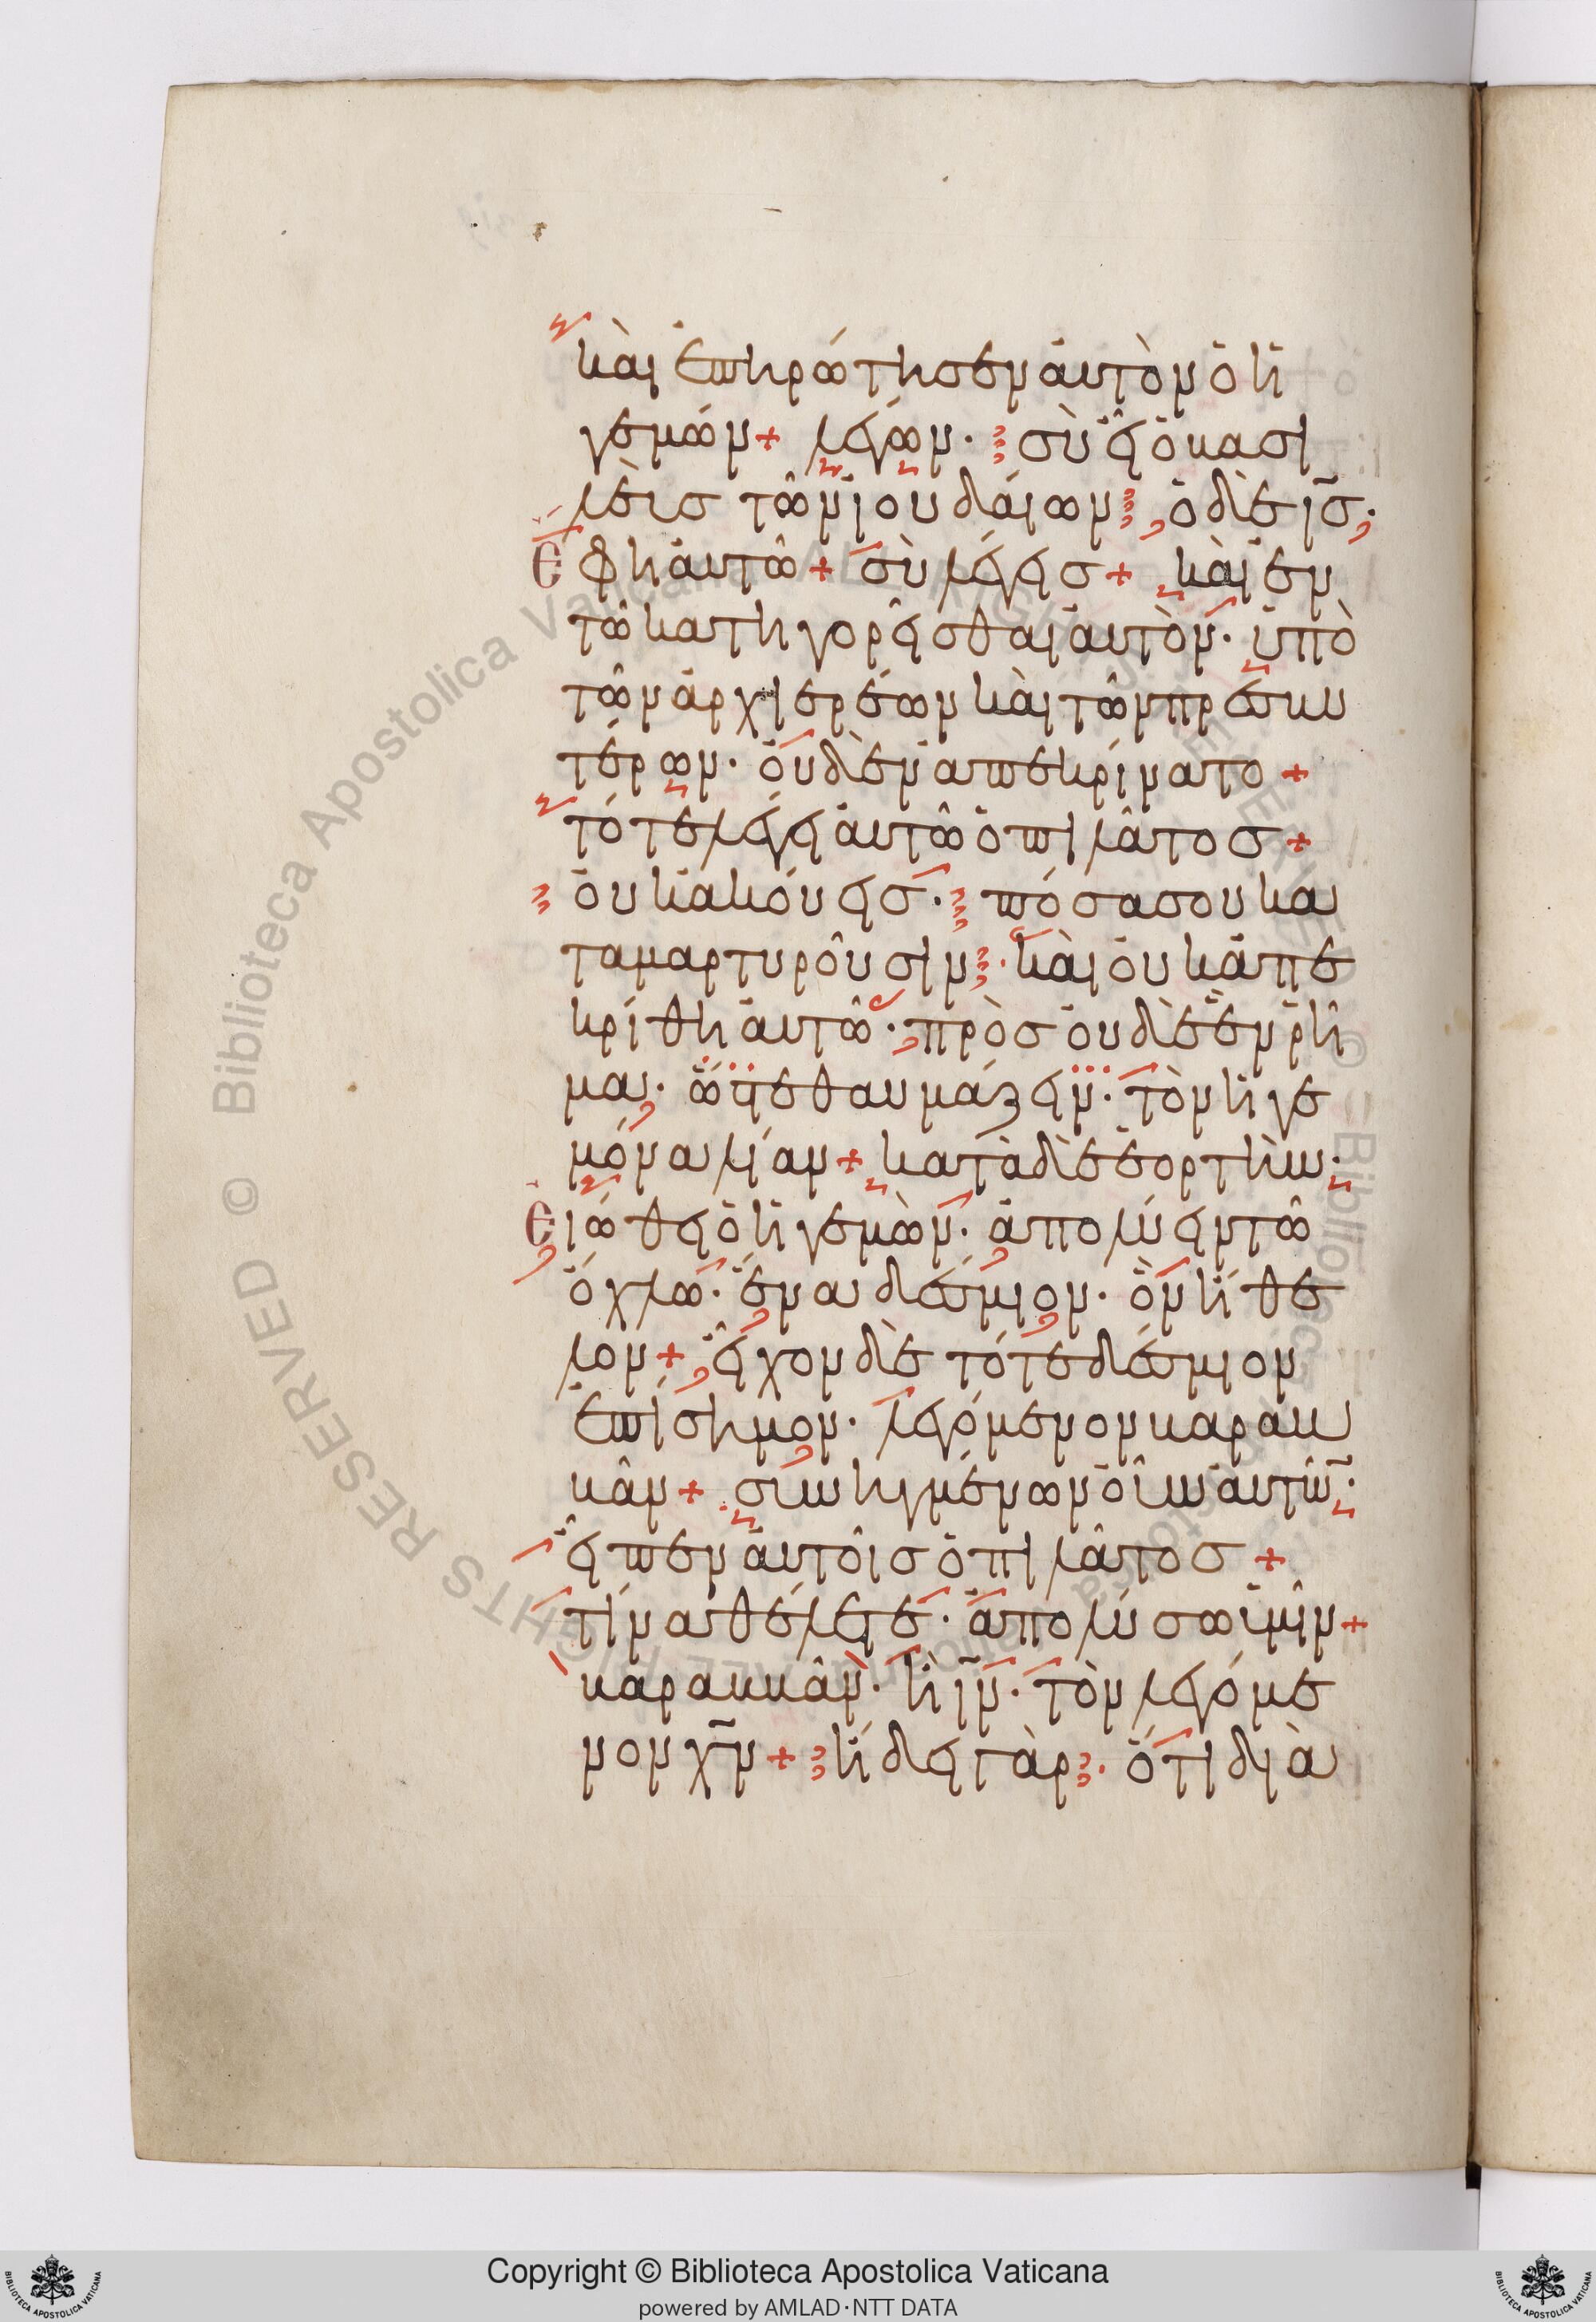 καὶ ἐπηρώτησεν ἀυτὸν ὁ ἡ
γεμών + λέγων · σὺ εἶ ὁ βασι
λεὺσ τῶν ἰουδάιων · ὁ δὲ ισ ·
Εφη ἀυτῶ + σὺ λέγεισ + κὰι ἐν
τῶ κατηγορεῖσθαι ἀυτὸν · ὑπὸ
τῶν ἀρχιερέων κὰι τῶν πρεσβυ
τέρων · ὀυδὲν ἀπεκρίνατο +
τότε λέγει ἀυτῶ ὁ πιλᾶτοσ +
ὀυκ ἀκόυεισ · πόσα σου κα
ταμαρτυροῦσιν · κὰι ὀυκ ἀπε
κρίθη ἀυτῶ · πρὸσ ὀυδὲ ἓν ῥῆ
μα · ὥστε θαυμάζειν · τὸν ἡγε
μόνα λίαν + κατὰ δὲ ἑορτὴν ·
Ειώθει ὁ ἡγεμὼν · ἀπολύειν τῶ
ὄχλω · ἕνα δέσμιον · ὃν ἤθε
λον + εἶχον δὲ τότε δέσμιον
ἐπίσημον · λεγόμενον βαραβ
βᾶν + συνηγμένων ὀῦν ἀυτῶν ·
εἶπεν ἀυτοῖσ ὁ πιλᾶτοσ +
τίνα θέλετε · ἀπολύσω ὑμῖν +
βαραββᾶν · ἢ ιν · τὸν λεγόμε
νον χν + ἤδει γὰρ · ὅτι διὰ
Copyright © Biblioteca Apostolica Vaticana
powered by AMLAD·NTT DATA